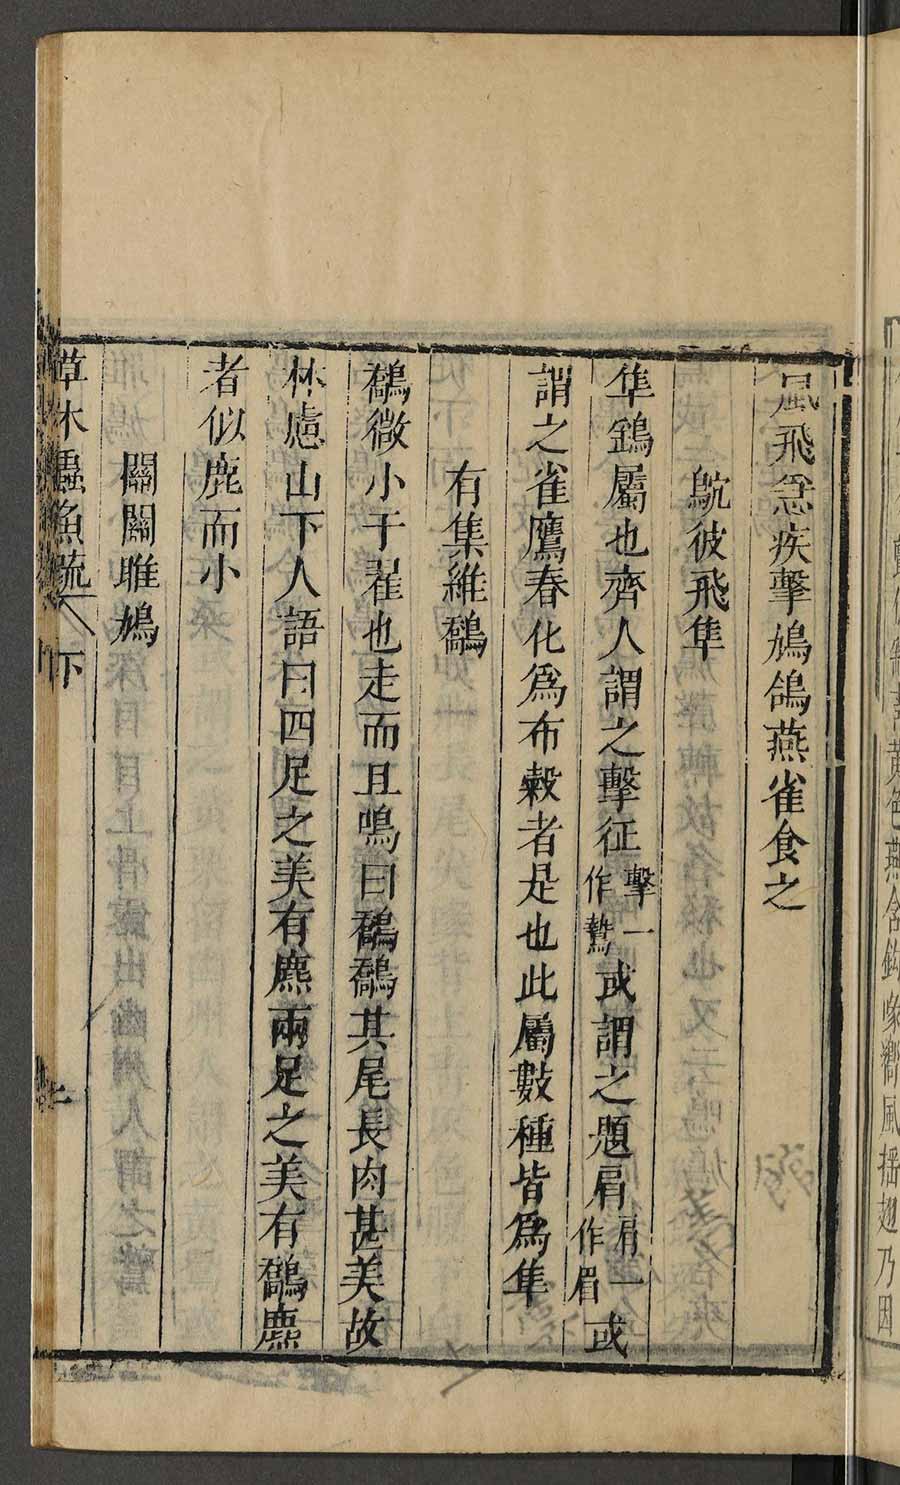 風飛急疾擊鳩鴿燕雀食之
鴥彼飛隼
隼鷂屬也齊人謂之擊征擊一作鷙或謂之題肩肩一作眉或
謂之雀鷹春化爲布穀者是也此屬數種皆爲隼
有集維鷮
鷮微小于翟也走而且鳴曰鷮鷮其尾長肉甚美故
林慮山下人語曰四足之美有麃兩足之美有鷮麃
者似鹿而小
關關雎鳩
草木蟲魚疏 下
黃色燕含鉤喙嚮風揺翅乃因